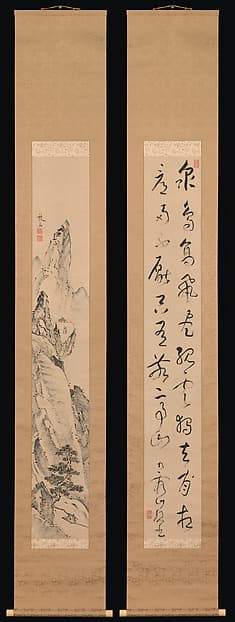 衆鳥高飛盡孤雲獨去閑相
看兩不厭只有敬亭山